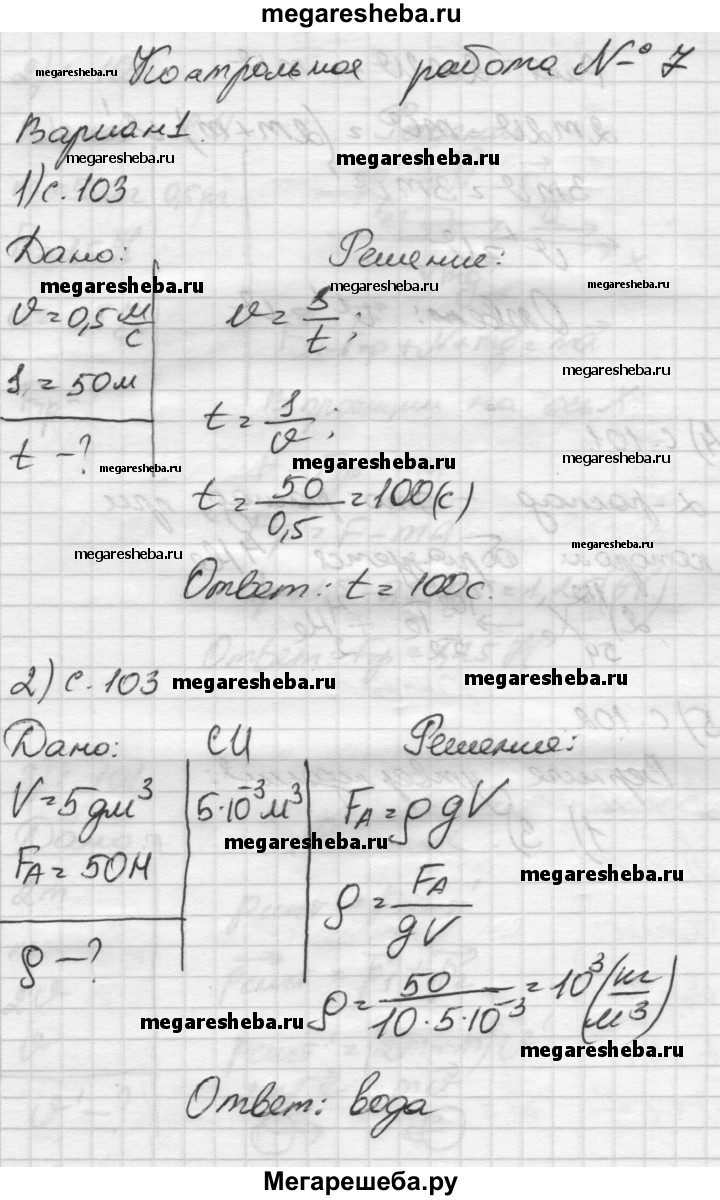 megaresheba.ru
Контрольная работа № 7
megaresheba.ru
Вариан 1.
megaresheba.ru megaresheba.ru
1) с. 103
Дано: Решение:
megaresheba.ru megaresheba.ru megaresheba.ru
υ = 0,5 м/с υ = S/t ;
S = 50м megaresheba.ru
t = S/υ ;
t - ? megaresheba.ru megaresheba.ru megaresheba.ru
t = 50/0,5 = 100(с)
megaresheba.ru megaresheba.ru
Ответ: t = 100с.
2) с. 103 megaresheba.ru megaresheba.ru
Дано: СИ Решение:
V = 5дм³ 5·10⁻³м³ F_A = ρgV
megaresheba.ru
F_A = 50Н ρ = F_A/gV megaresheba.ru
ρ - ?
ρ = 50/10·5·10⁻³ = 10³(кг/м³)
megaresheba.ru megaresheba.ru
Ответ: вода
Мегарешеба.ру